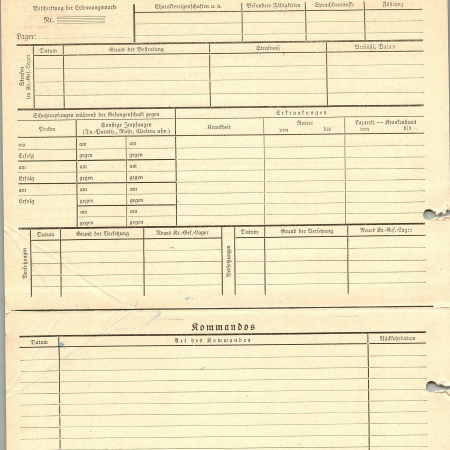 Beschriftung der Erkennungsmarke
Nr.
Lager:
Charaktereigenschaften u. a.
Besondere Fähigkeiten
Sprachkenntnisse
Führung
Strafen im Kr.-Gef.-Lager
Datum
Grund der Bestrafung
Strafmaß
Verbüßt, Datum
Schutzimpfungen während der Gefangenschaft gegen
Erkrankungen
Pocken
Sonstige Impfungen
(Ty.-Paratv., Ruhr, Cholera usw.)
Krankheit
Revier
von bis
Lazarett — Krankenhaus
von bis
am am am
Erfolg gegen gegen
am am am
Erfolg gegen gegen
am am am
Erfolg gegen gegen
am am
gegen gegen
Versetzungen
Datum
Grund der Versetzung
Neues Kr.-Gef.-Lager
Versetzungen
Datum
Grund der Versetzung
Neues Kr.-Gef.-Lager
Kommandos
Datum
Art des Kommandos
Rückkehrdatum